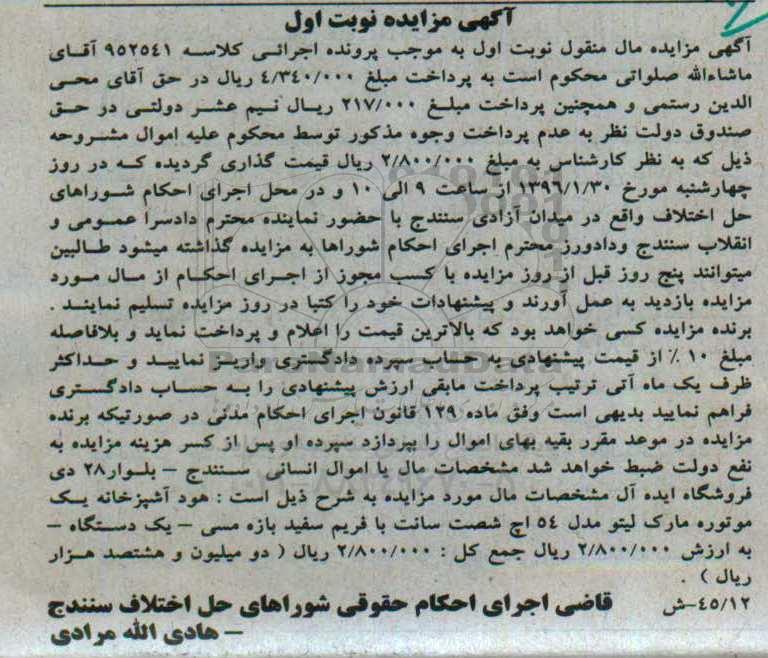 آگهی مزایده نوبت اول
آگهی مزایده مال منقول نوبت اول به موجب پرونده اجرائی کلاسه ۹۵۲۵۴۱ آقای
ماشاءالله صلواتی محکوم است به پرداخت مبلغ ۴/۳۴۰/۰۰۰ ریال در حق آقای محی
الدین رستمی و همچنین پرداخت مبلغ ۲۱۷/۰۰۰ ریال نیم عشر دولتی در حق
صندوق دولت نظر به عدم پرداخت وجوه مذکور توسط محکوم علیه اموال مشروحه
ذیل که به نظر کارشناس به مبلغ ۲/۸۰۰/۰۰۰ ریال قیمت گذاری گردیده که در روز
چهارشنبه مورخ ۱۳۹۶/۱/۳۰ از ساعت ۹ الی ۱۰ و در محل اجرای احکام شوراهای
حل اختلاف واقع در میدان آزادی سنندج با حضور نماینده محترم دادسرا عمومی و
انقلاب سنندج ودادورز محترم اجرای احکام شوراها به مزایده گذاشته میشود طالبین
میتوانند پنج روز قبل از روز مزایده با کسب مجوز از اجرای احکام از مال مورد
مزایده بازدید به عمل آورند و پیشنهادات خود را کتبا در روز مزایده تسلیم نمایند .
برنده مزایده کسی خواهد بود که بالاترین قیمت را اعلام و پرداخت نماید و بلافاصله
مبلغ ۱۰ ٪ از قیمت پیشنهادی به حساب سپرده دادگستری واریز نمایید و حداکثر
ظرف یک ماه آتی ترتیب پرداخت مابقی ارزش پیشنهادی را به حساب دادگستری
فراهم نمایید بدیهی است وفق ماده ۱۲۹ قانون اجرای احکام مدنی در صورتیکه برنده
مزایده در موعد مقرر بقیه بهای اموال را بپردازد سپرده او پس از کسر هزینه مزایده به
نفع دولت ضبط خواهد شد مشخصات مال یا اموال انسانی سنندج – بلوار۲۸ دی
فروشگاه ایده آل مشخصات مال مورد مزایده به شرح ذیل است : هود آشپزخانه یک
موتوره مارک لیتو مدل ۵۴ اچ شصت سانت با فریم سفید بازه مسی – یک دستگاه –
به ارزش ۲/۸۰۰/۰۰۰ ریال جمع کل : ۲/۸۰۰/۰۰۰ ریال ( دو میلیون و هشتصد هزار
ریال ) .
۴۵/۱۲-ش قاضی اجرای احکام حقوقی شوراهای حل اختلاف سنندج
– هادی الله مرادی
ParsNamadData